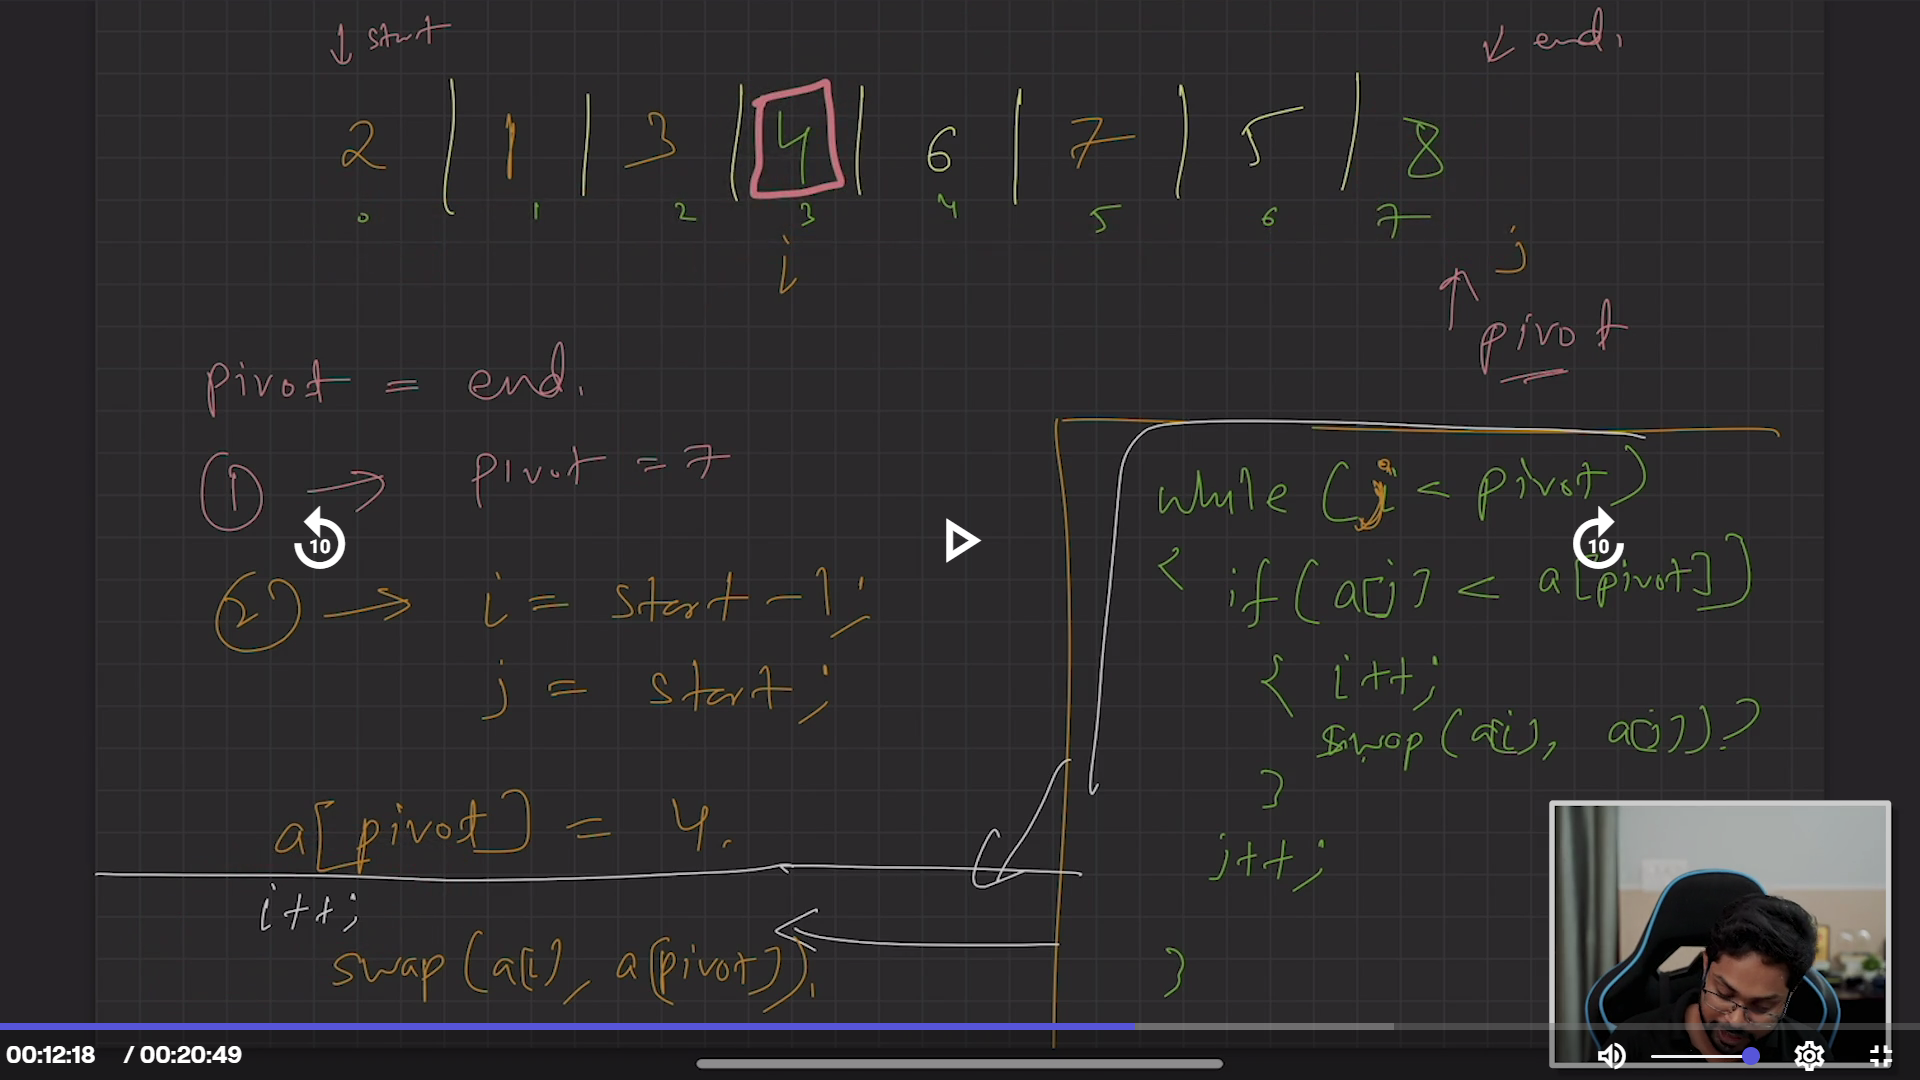 ↓ start
↙ end.
2 | 1 | 3 | 4 | 6 | 7 | 5 | 8
0 1 2 3 4 5 6 7
i
j
↑ pivot
pivot = end.
① → pivot = 7
② → i = start - 1;
j = start;
a[pivot] = 4.
i++;
swap(a[i], a[pivot]);
while (j < pivot)
{ if (a[j] < a[pivot])
{ i++;
swap(a[i], a[j])?
}
j++;
}
10
10
00:12:18 / 00:20:49